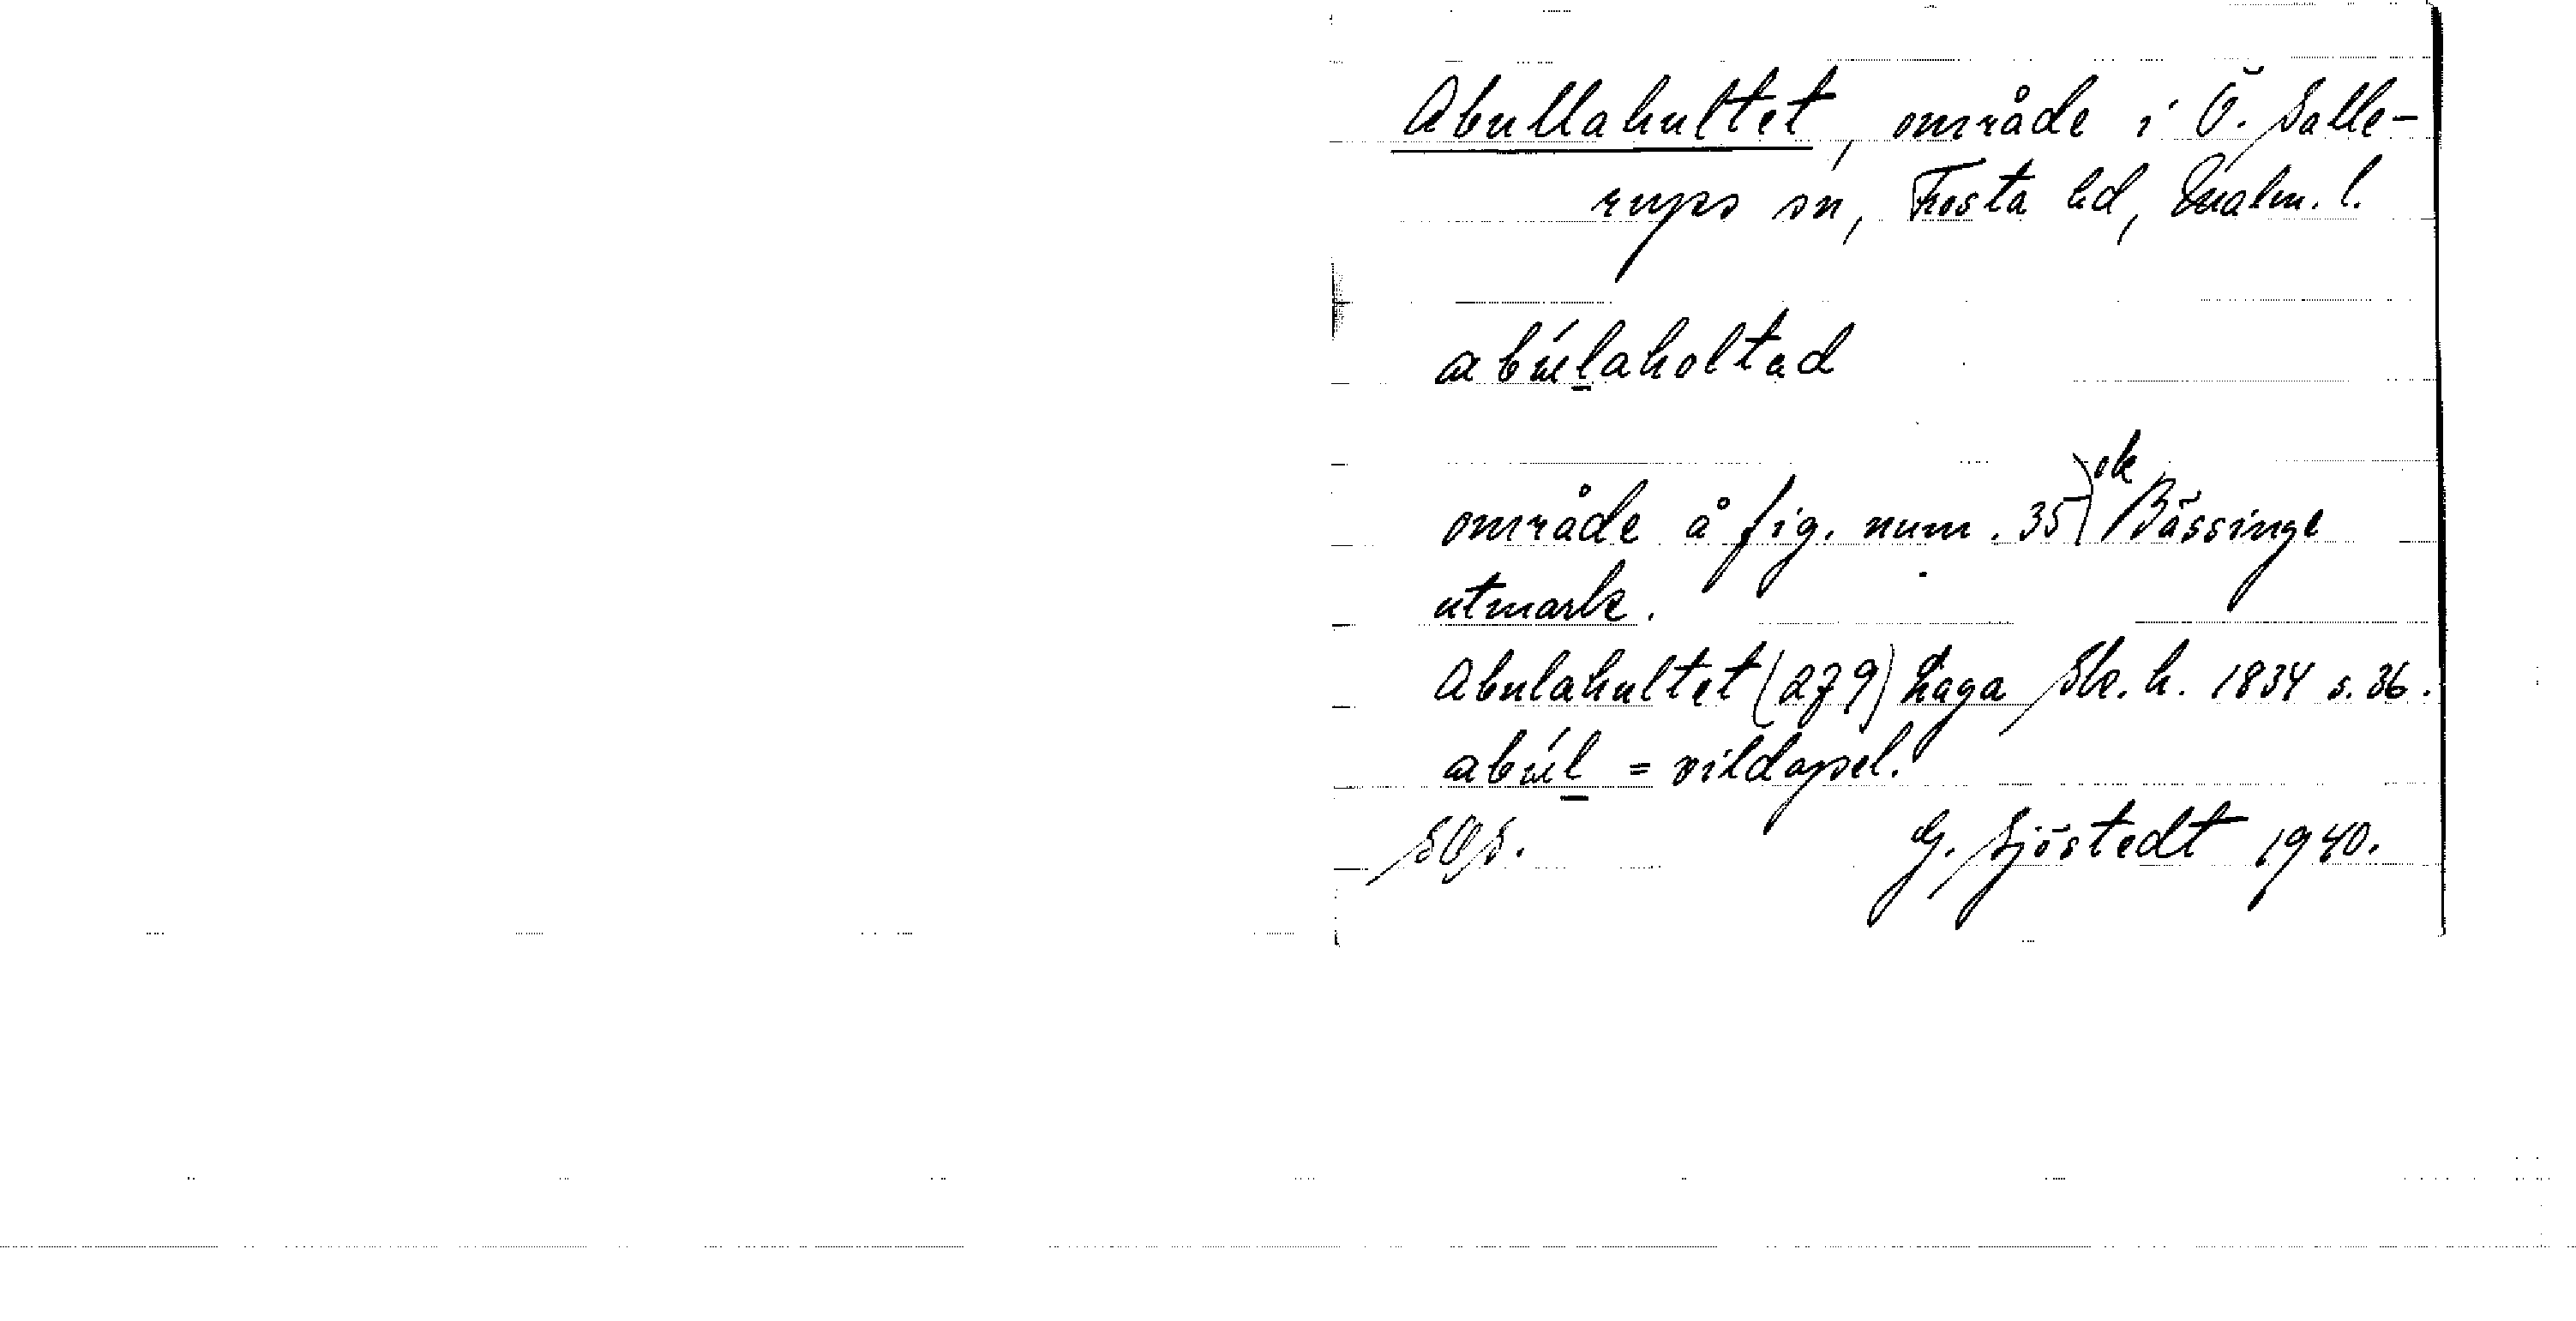 Abullahultet, område i Ö. Salle-
rups sn, Frosta hd, Malm. l.
abúlaholtad
ok
område å fig. num. 35) Bössinge
utmark.
Abulahultet (279) haga Sk. h. 1834 s. 36.
abúl = vildapel.
SOS. G. Sjöstedt 1940.